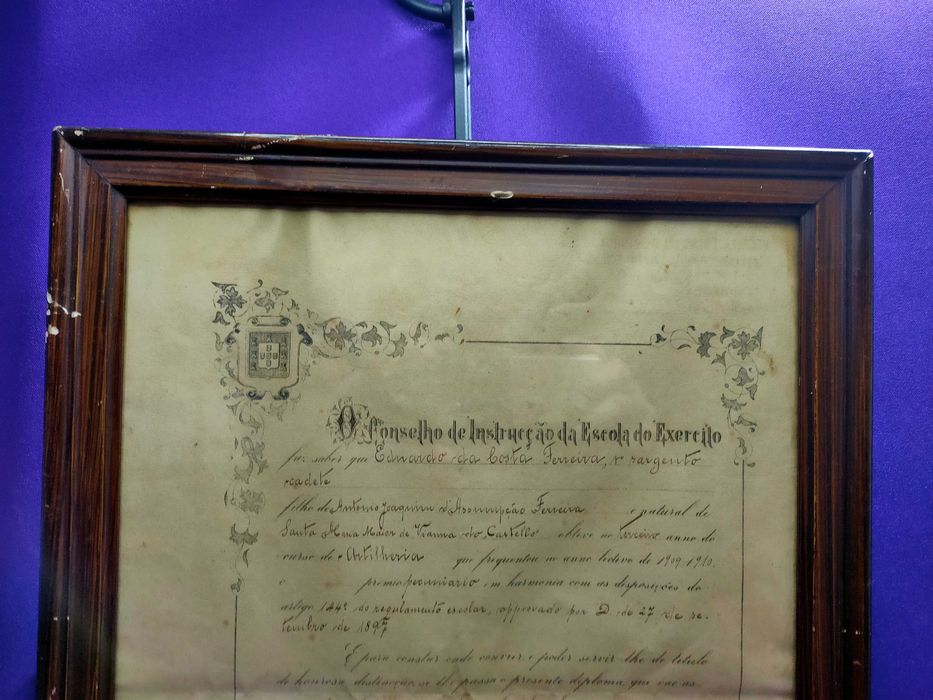 O Conselho de Instrucção da Escola do Exercito
faz saber que Eduardo da Costa Ferreira, 1º sargento
cadete
filho de Antonio Joaquim d'Assumpção Ferreira e natural de
Santa Maria Maior de Vianna do Castello obteve no terceiro anno do
curso de Artilheria que frequentou no anno lectivo de 1909-1910
o premio pecuniario em harmonia com as disposições do
artigo 144º do regulamento escolar, approvado por D. de 27 de se-
tembro de 1897
E para constar onde convier, e poder servir-lhe de titulo
de honrosa distincção, se lhe passa o presente diploma, que vae as-